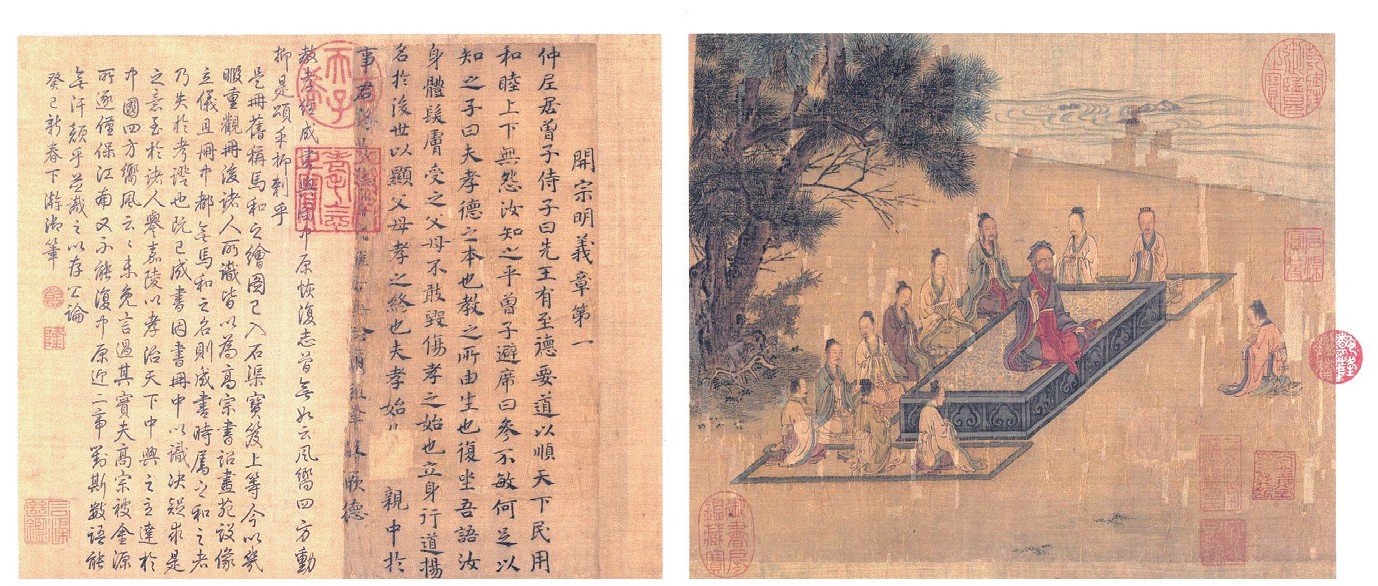 開宗明義章第一
仲尼居曾子侍子曰先王有至德要道以順天下民用
和睦上下無怨汝知之乎曾子避席曰參不敏何足以
知之子曰夫孝德之本也教之所由生也復坐吾語汝
身體髮膚受之父母不敢毀傷孝之始也立身行道揚
名於後世以顯父母孝之終也夫孝始 親中於
事君 厥德
教孝經成書與 中原恢復志曾無如云風嚮四方動
抑是頌乎抑刺乎
是冊舊稱馬和之繪圖已入石渠寶笈上等今以幾
暇重觀冊後諸人所識皆以為高宗書詔畫苑設像
立儀且冊中都無馬和之名則成書時屬之和之者
乃失於考證也既已成書因書冊中以識決疑求是
之意至於諸人譽嘉陵以孝治天下中興之主達於
中國四方嚮風云云未免言過其實夫高宗被金源
所逐僅保江南又不能復中原近二帝對斯數語能
無汗顏乎並識之以存公論
癸巳新春下澣御筆